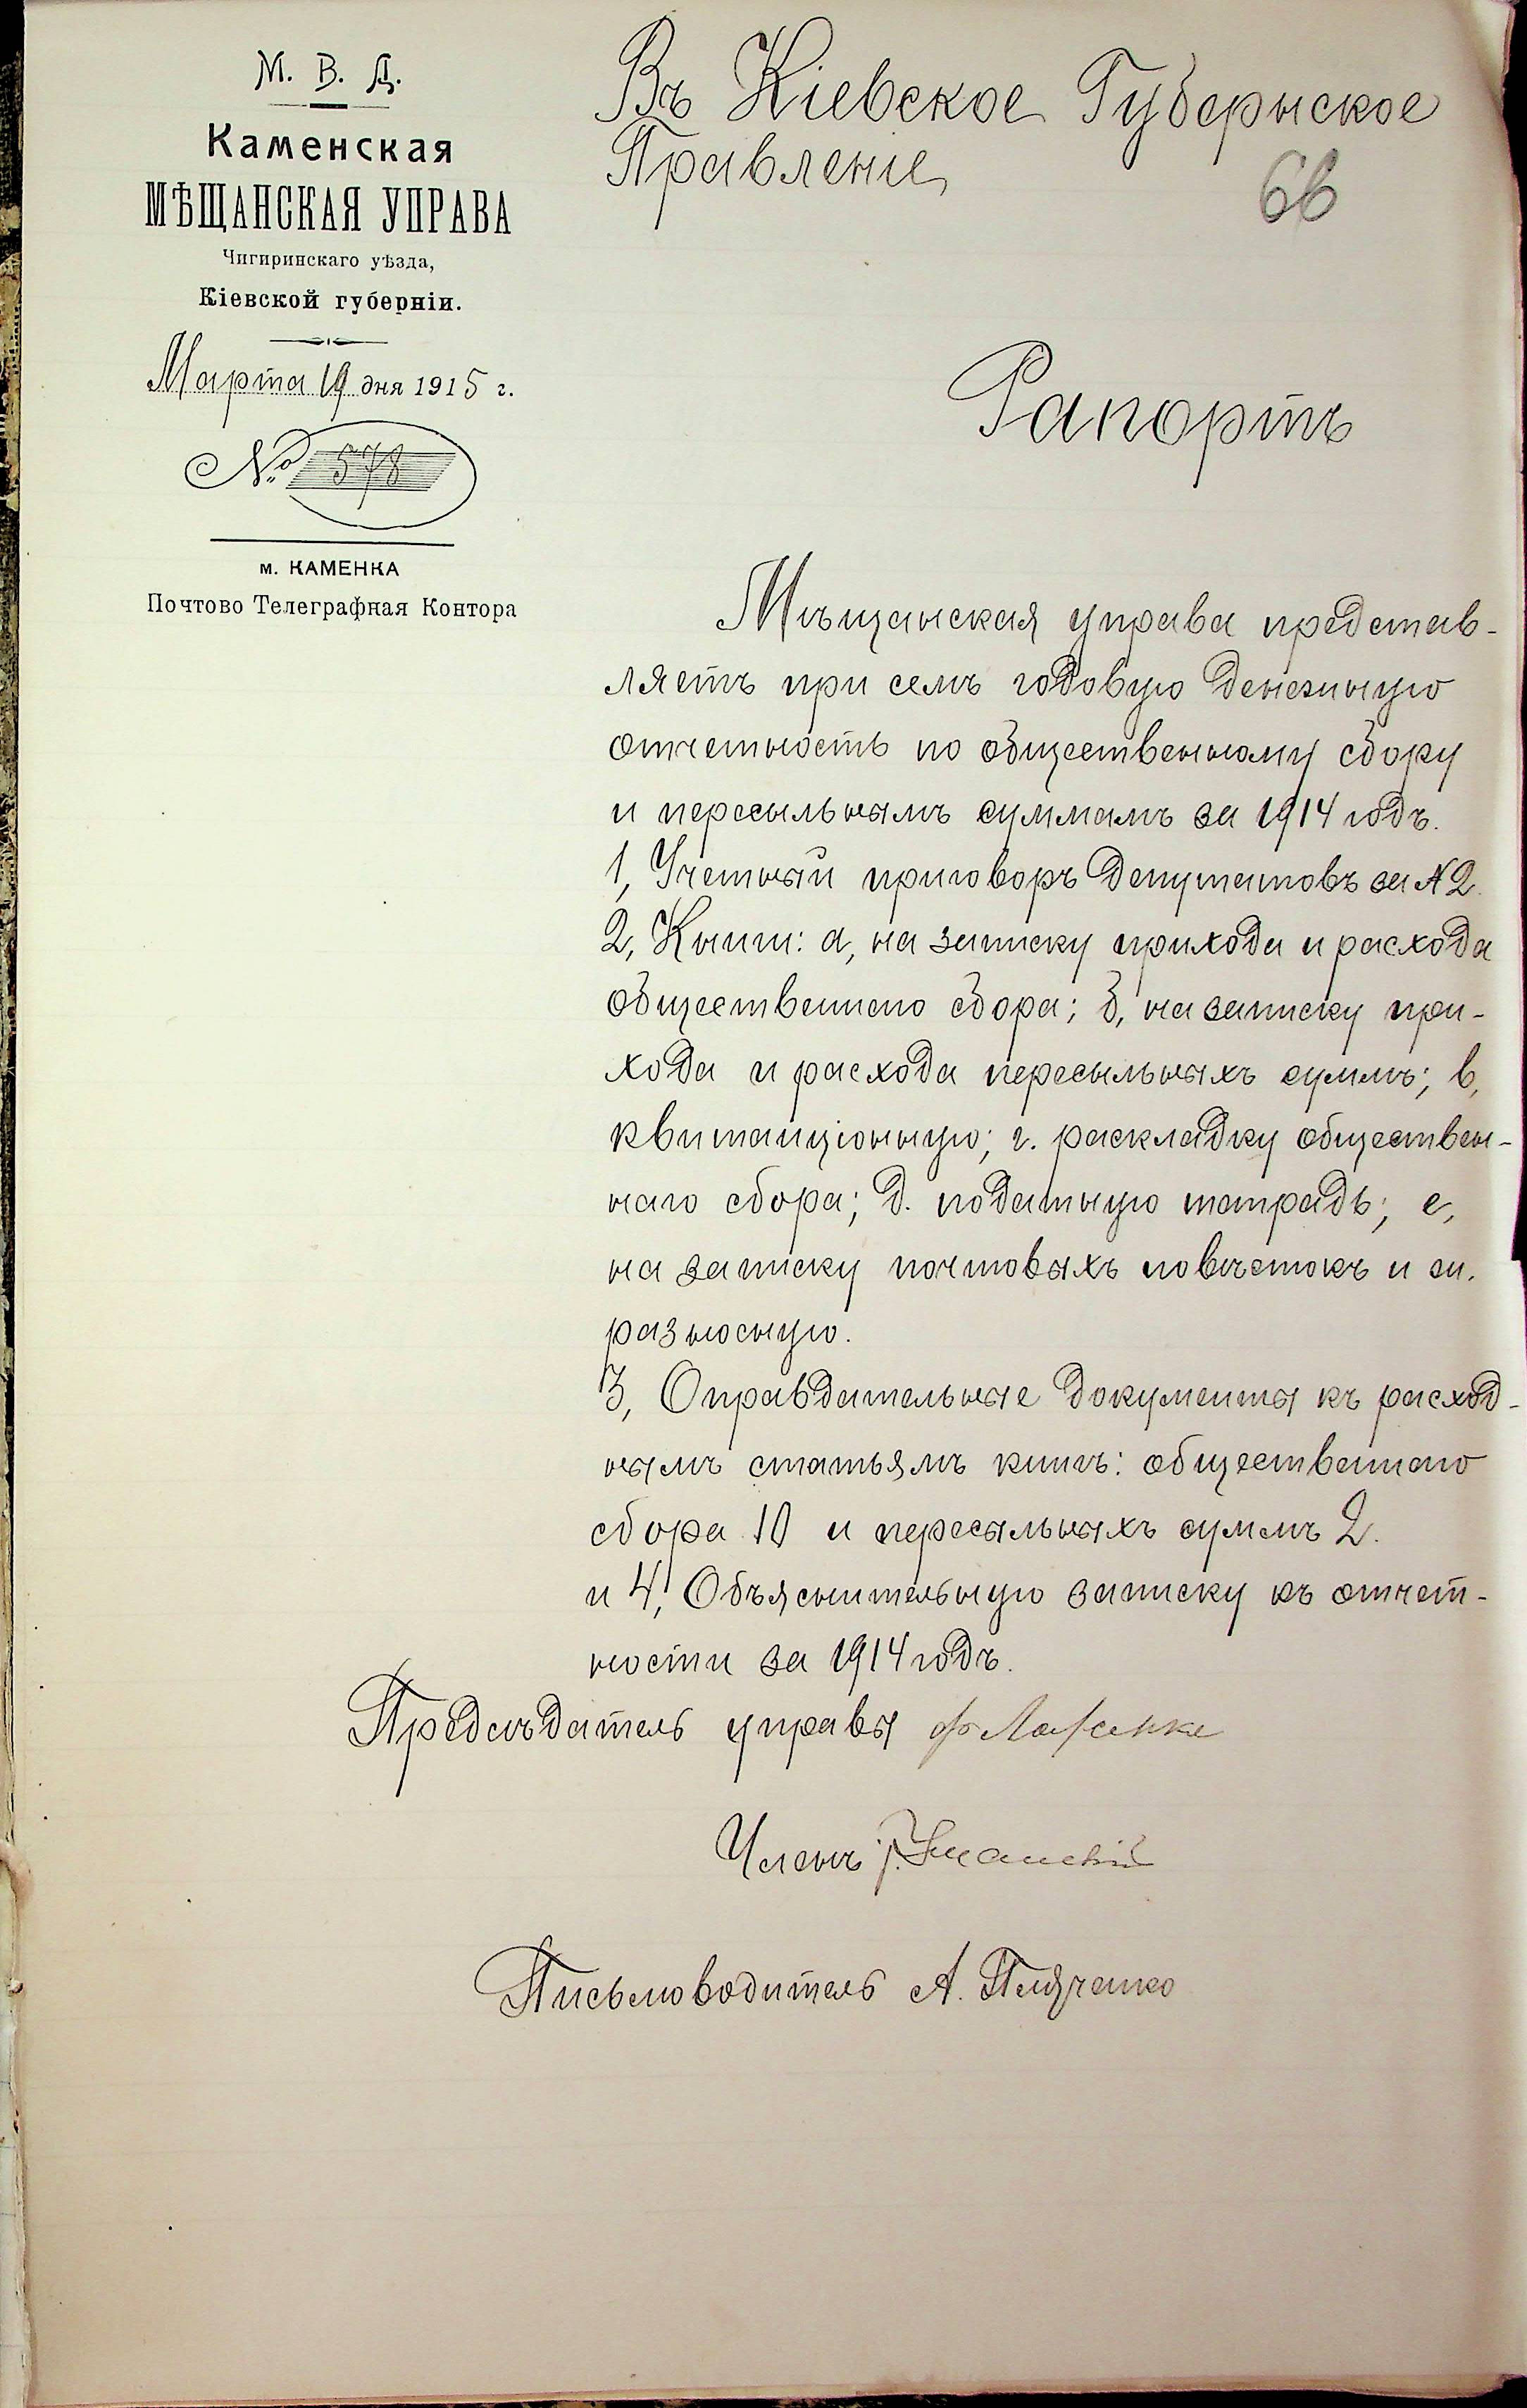 М. В. Д.
Каменская
МѢЩАНСКАЯ УПРАВА
Чигиринскаго уѣзда,
Кіевской губерніи.
Марта 19 дня 1915 г.
№ 578
м. КАМЕНКА
Почтово Телеграфная Контора
Въ Кіевское Губернское
Правленіе
66
Рапортъ
Мѣщанская управа представ-
ляетъ при семъ годовую денежную
отчетность по общественному сбору
и пересыльнымъ суммамъ за 1914 годъ.
1, Учетный приговоръ депутатовъ за № 2.
2, Книги: а, на записку прихода и расхода
общественнаго сбора; б, на записку при-
хода и расхода пересыльныхъ суммъ; в,
квитанціонную; г. раскладку обществен-
наго сбора; д. податную тетрадь; е,
на записку почтовыхъ повѣстокъ и ж.
разносную.
3, Оправдательные документы къ расход-
нымъ статьямъ книгъ: общественнаго
сбора 10 и пересыльныхъ суммъ 2.
и 4, Объяснительную записку къ отчет-
ности за 1914 годъ.
Предсѣдатель управы
Членъ
Письмоводитель А.